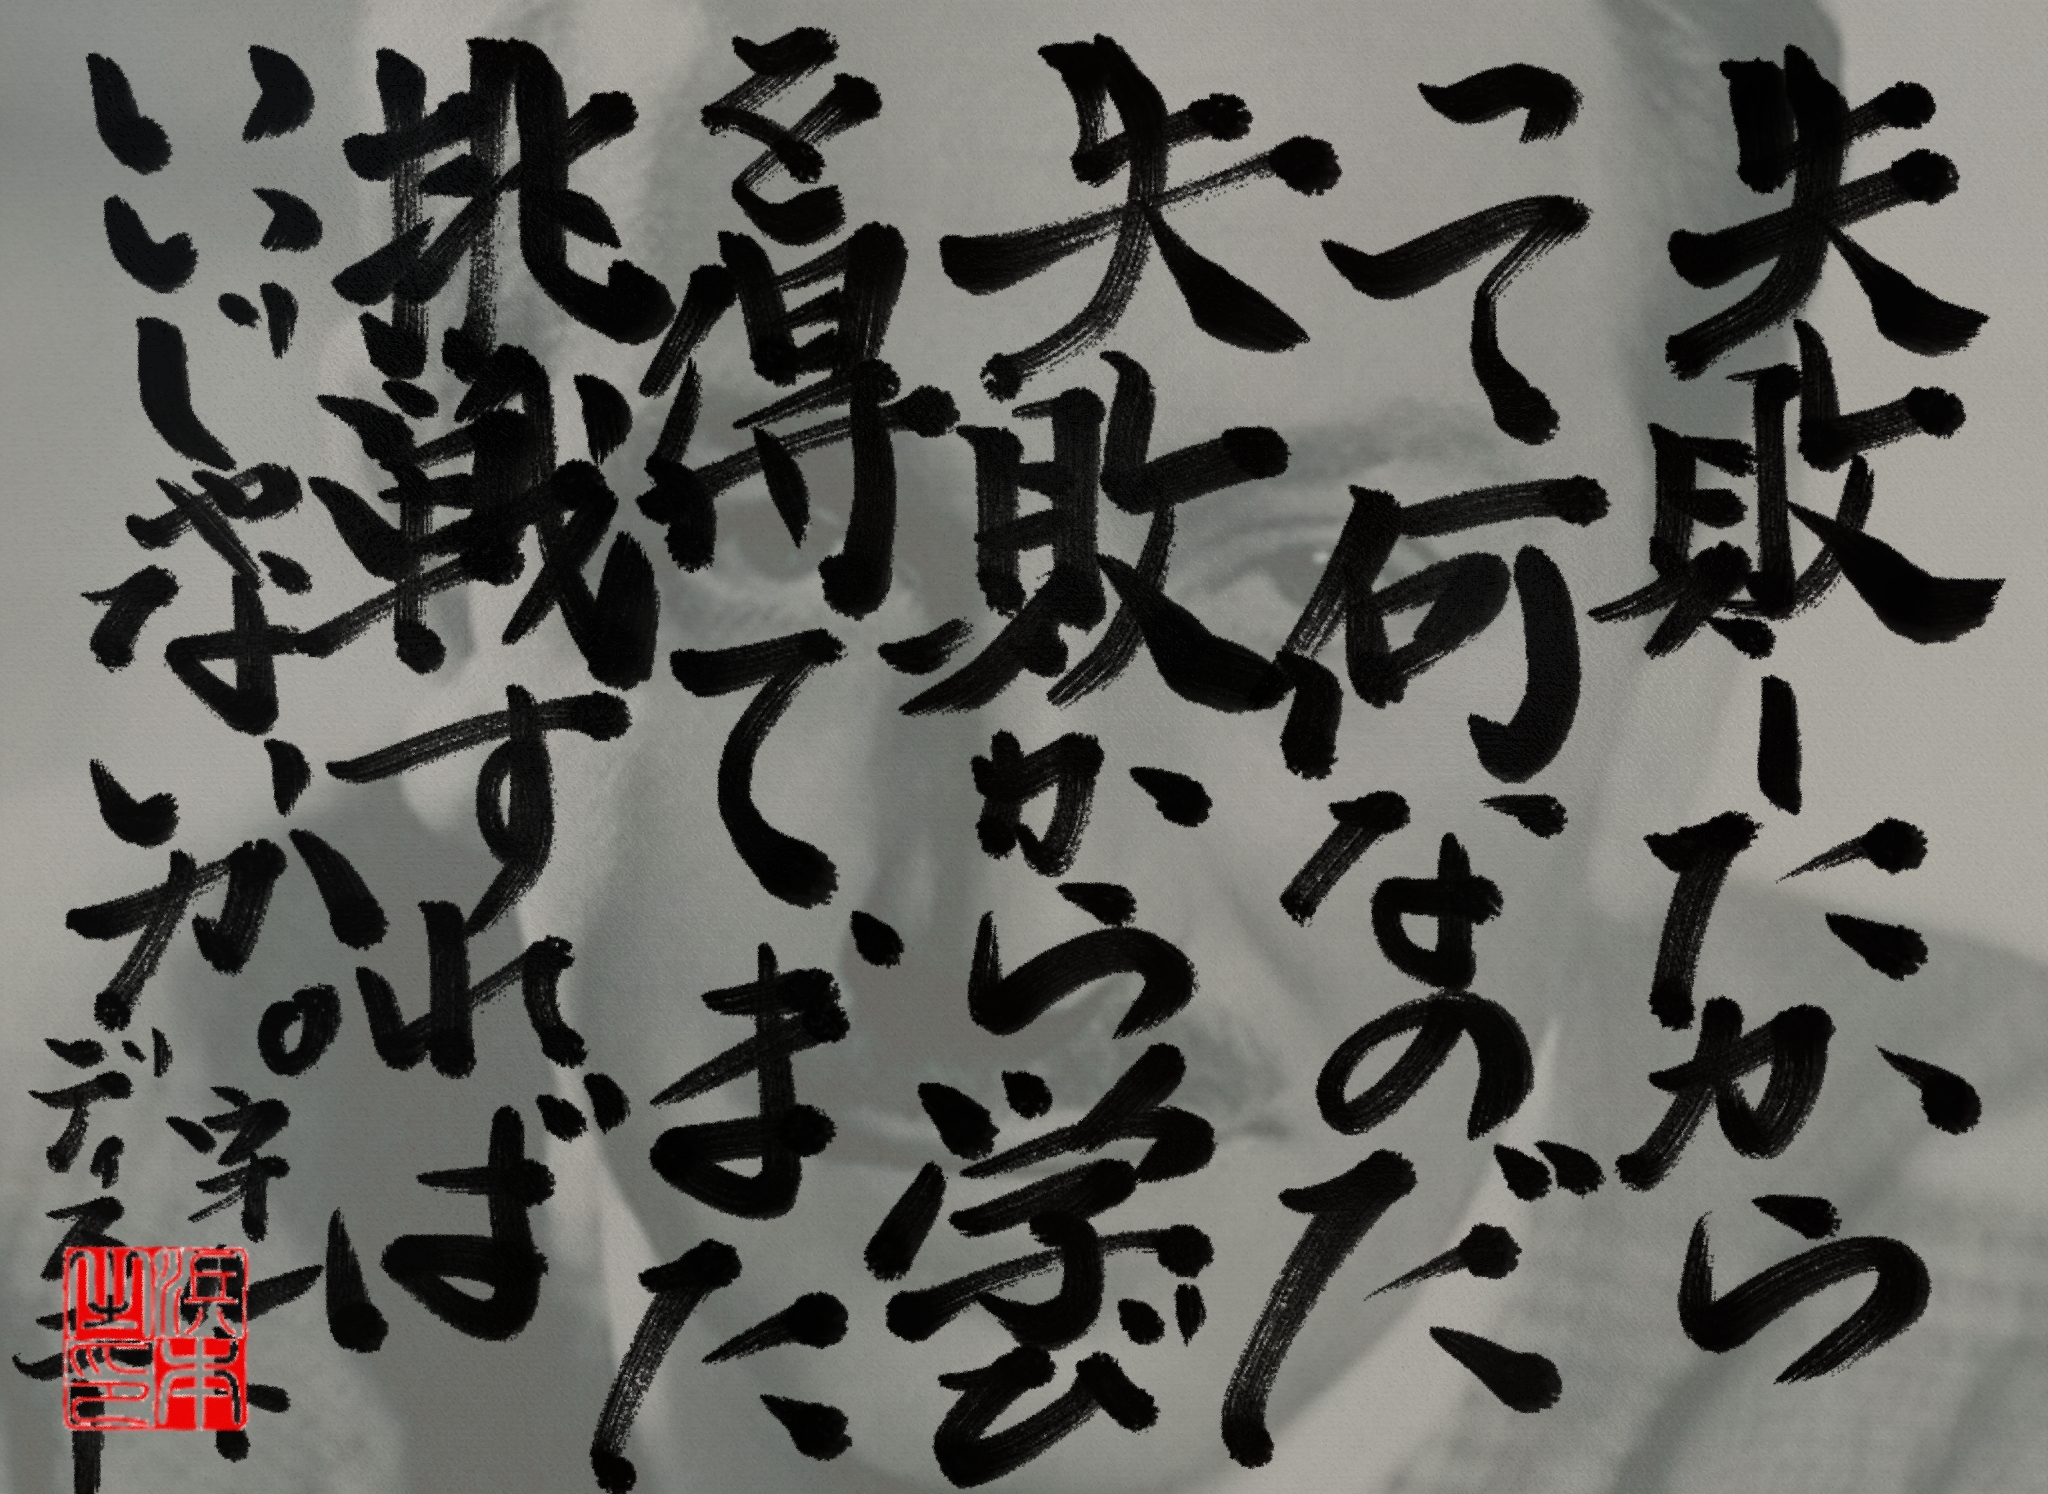 失敗したから
って何なのだ
失敗から学び
を得て、また
挑戦すれば
いいじゃないか。
ウォルト
ディズニー
浜本
之印